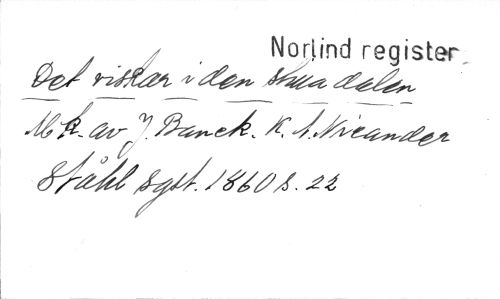 Norlind register
Det viskar i den skua dalen
Mk. av J. Banck. K. A. Nicander
Ståhl sgst. 1860 s. 22